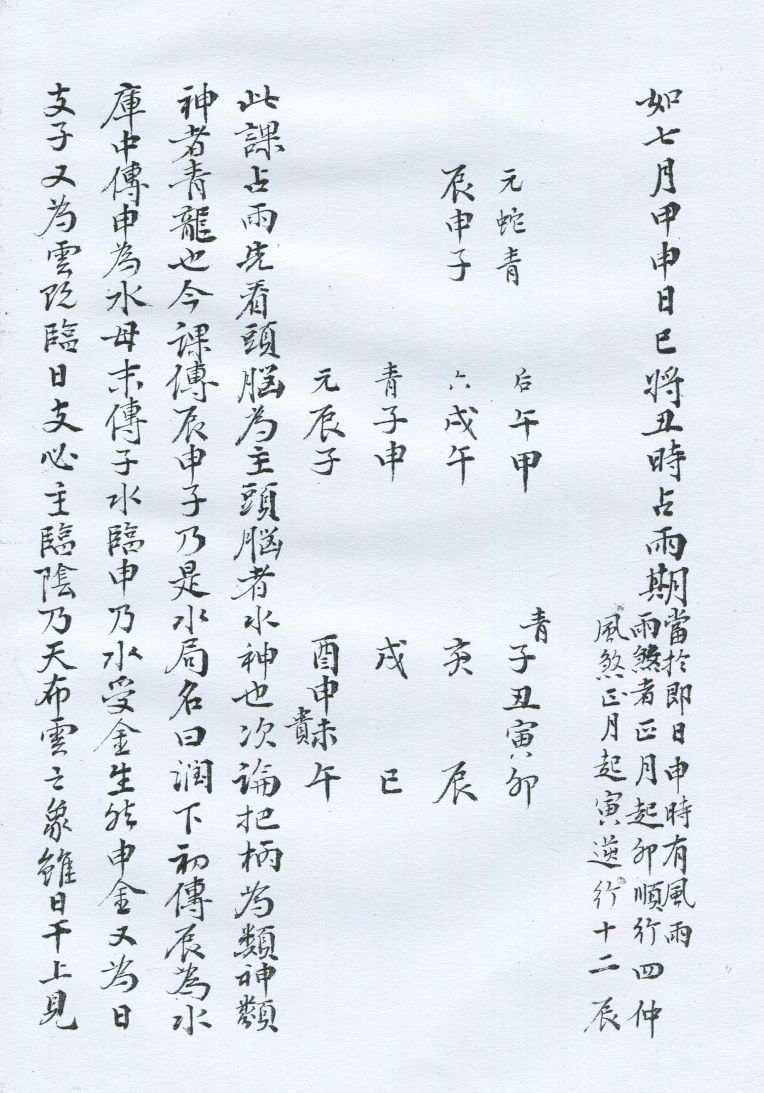 如七月甲申日巳將丑時占雨期
當於即日申時有風雨
雨煞者正月起卯順行四仲
風煞正月起寅逆行十二辰
元蛇青
辰申子
后午甲
六戌午
青子申
元辰子
青
子丑寅卯
亥 辰
戌 巳
酉申未午
貴
此課占雨先看頭腦為主頭腦者水神也次論把柄為類神類
神者青龍也今課傳辰申子乃是水局名曰潤下初傳辰為水
庫中傳申為水母末傳子水臨申乃水受金生然申金又為日
支子又為雲既臨日支必主臨陰乃天布雲之象雖日干上見